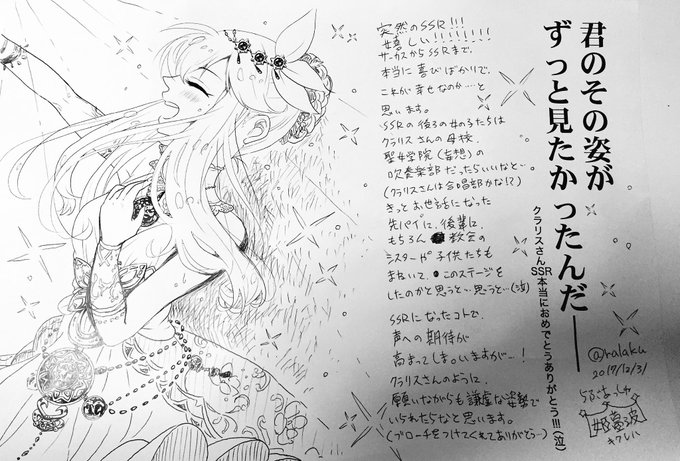 君のその姿が
ずっと見たかったんだ――
クラリスさんSSR本当におめでとうありがとう!!!(泣)
突然のSSR!!!
嬉しい!!!!!!!!
サーカスからSSRまで、
本当に喜びばかりで、
これが幸せなのか…と
思います。
SSRの後ろの女の子たちは
クラリスさんの母校、
聖女学院(妄想)の
吹奏楽部だったらいいなと…
(クラリスさんは合唱部かな!?)
きっとお世話になった
先パイに、後輩に、
もちろん教会の
シスターや子供たちも
まねいて、このステージを
したのかと思うと…思うと…(泣)
SSRになったコトで、
声への期待が
高まってしまいますが…!
クラリスさんのように、
願いながらも謙虚な姿勢で
いられたらなと思います。
(ブローチをつけてくれてありがとう…)
@ralaku
2017/12/3
姫夢波